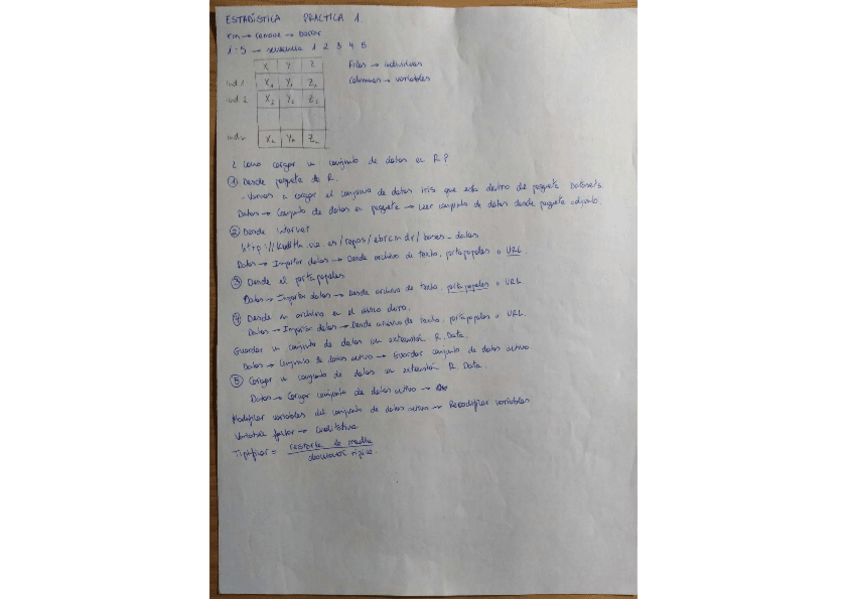 ESTADÍSTICA PRACTICA 1.
rm → remove → borrar
1:5 → secuencia 1 2 3 4 5
X Y Z Filas → individuos
ind 1 X1 Y1 Z1 Columnas → variables
ind 2 X2 Y2 Z2
ind n Xn Yn Zn
¿Como cargar un conjunto de datos en R?
① Desde paquete de R.
- Vamos a cargar el conjunto de datos iris que esta dentro de paquete Datasets
Datos → Conjunto de datos en paquete → Leer conjunto de datos desde paquete adjunto.
② Desde
Datos → Importar datos → Desde archivo de texto, portapapeles o URL.
③ Desde el portapapeles
Datos → Importar datos → Desde archivo de texto, portapapeles o URL
④ Desde un archivo en el disco duro.
Datos → Importar datos → Desde archivo de texto, portapapeles o URL.
Guardar un conjunto de datos con extensión R.Data.
Datos → Conjunto de datos activo → Guardar conjunto de datos activo
⑤ Cargar un conjunto de datos en extensión R.Data.
Datos → Cargar conjunto de datos activo →
Modificar variables del conjunto de datos activo → Recodificar variables
Variable factor → Cualitativa
Tipificar = restarle la media
desviación típica.